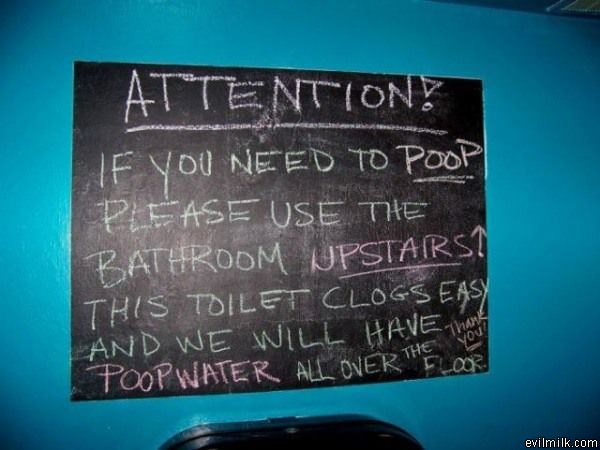 ATTENTION!
IF YOU NEED TO POOP
PLEASE USE THE
BATHROOM UPSTAIRS↑
THIS TOILET CLOGS EASY
AND WE WILL HAVE
POOPWATER ALL OVER THE FLOOR.
Thank
you!
evilmilk.com